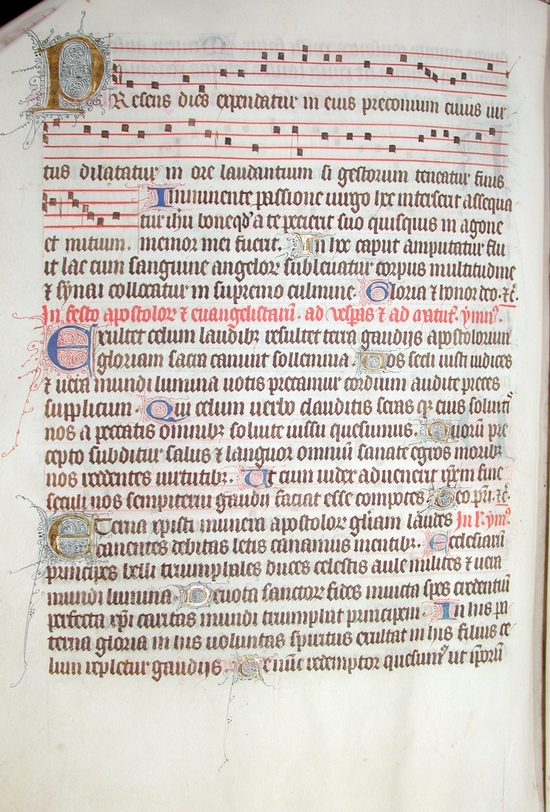 PResens dies expendatur in eius preconium cuius vir
tus dilatatur in ore laudantium si gestorum teneatur finis
Imminente passione virgo hec interserit assequa
tur ihu boneqd a te petierit suo quisquis in agone
et mitium. memor mei fuerit. In hac caput amputatur flu
it lac cum sanguine angelor sublevatur corpus multitudine
⁊ synai collocatur in supremo culmine. Gloria ⁊ honor deo. ⁊c̄.
In festo apostolor ⁊ euangelistarū. ad vespas ⁊ ad matut. ymn9.
Exultet celum laudib resultet terra gaudijs apostolorum
gloriam sacra canunt sollemnia. Vos secli iusti iudices
⁊ vera mundi lumina votis precamur cordium audite preces
supplicum. Qui celum verbo clauditis seras q eius solviti
nos a peccatis omnib solvite iussu quesumus. Quorū pre
cepto subditur salus ⁊ languor omniū sanate egros morib
nos reddentes virtutib. Ut cum iudex advenerit xp̄c in fine
seculi nos sempiterni gaudij faciat esse compotes. Deo pr̄i. ⁊c̄.
Eterna xpisti munera apostolor gl̄iam laudes In l. ymn9.
canentes debitas letis canamus mentib. Ecclesiarū
principes belli triumphales duces celestis aule milites ⁊ vera
mundi lumina. Devota sanctor fides invicta spes credentiū
perfecta xp̄i caritas mundi triumphat principem. In his pa
terna gloria in his voluntas spiritus exultat in his filius ce
lum repletur gaudijs. Te nunc redemptor quesum9 ut ip̄orū